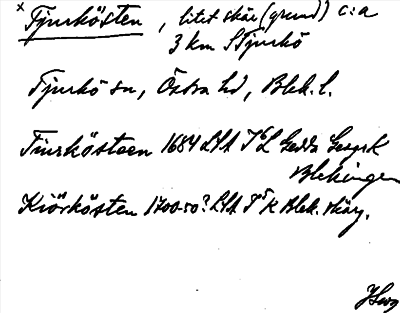 x Tjurkösten, litet skär (grund) c:a
3 km S Tjurkö
Tjurkö sn, Östra hd, Blek. l.
Tiurkösteen 1684 LSA
Blekingen
Kiörkösten 1700-50? LSA Blek. skärg.